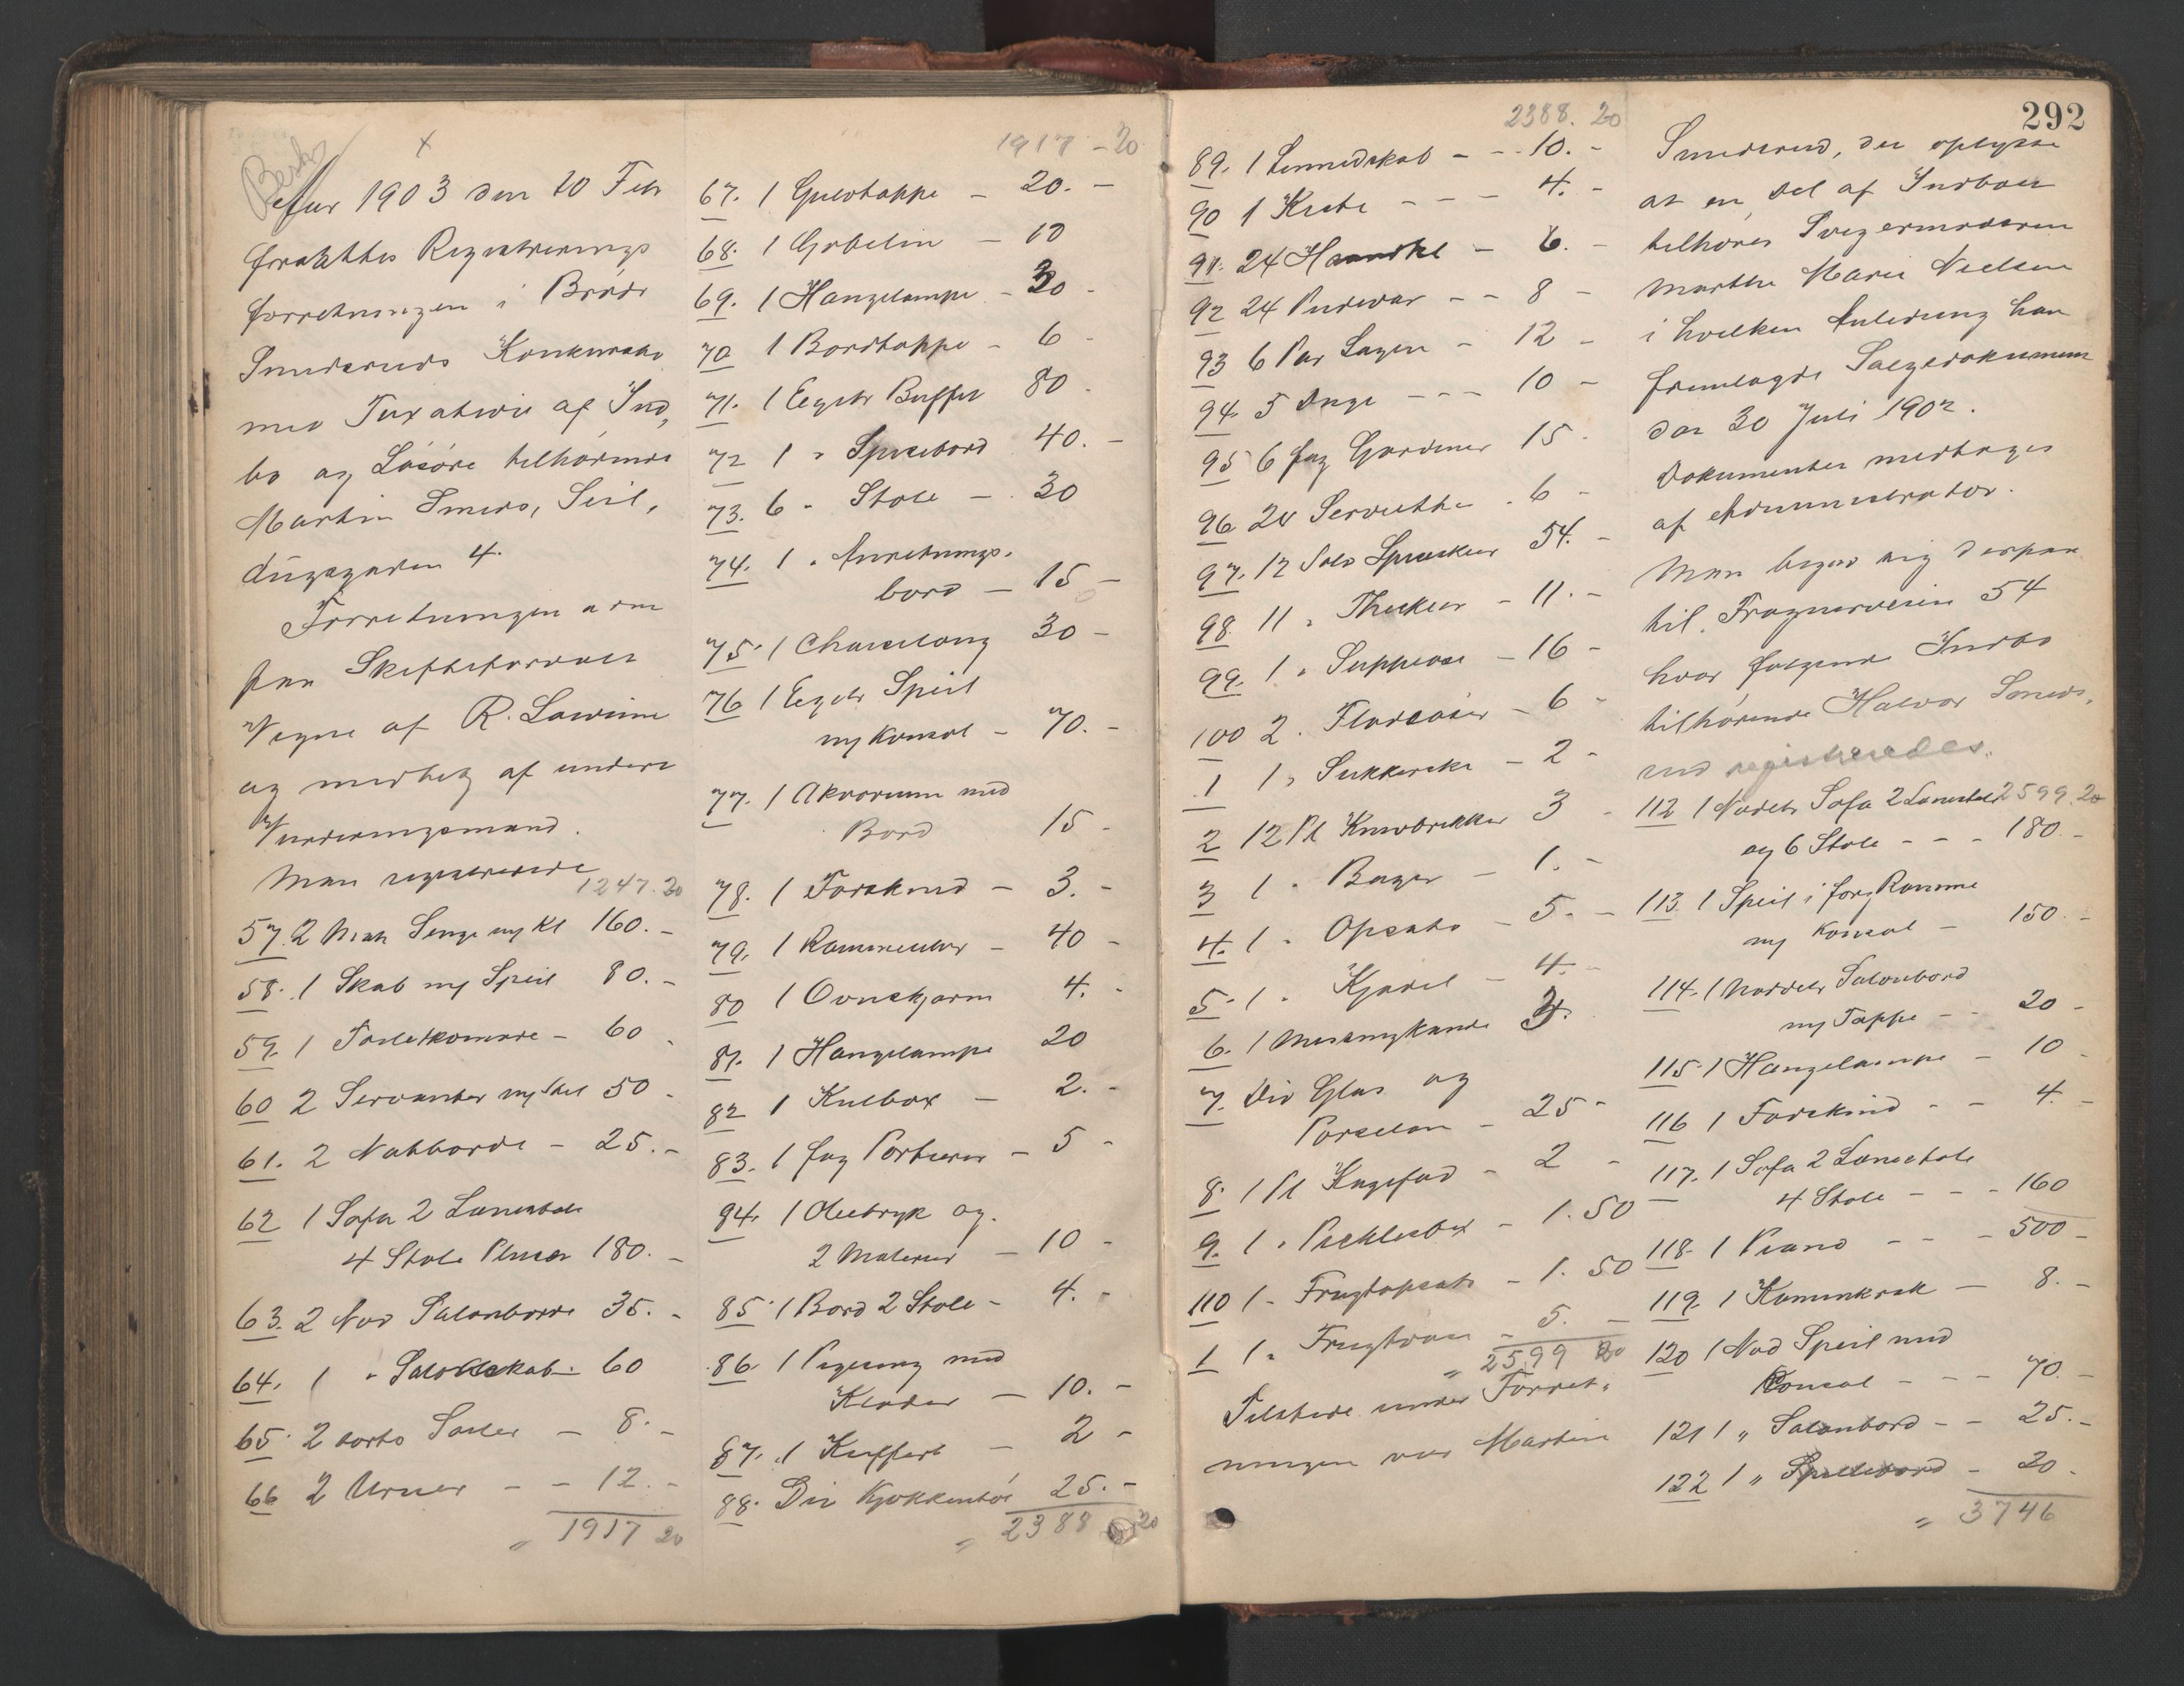 292
Besk
x
Aar 1903 den 20 Febr
fortsattes Registrerings
forretningen i Brødr
Smederuds Konkursbo
med Taxation af Ind,
bo og Løsøre tilhørende
Martin Smeds, Seil,
dugsgaden 4.
Forretningen adm
paa Skifteforvalt
Vegne af R. Lowum
og medhelp af undert
Vurderingsmænd.
Man registrerede
1247.20
57. 2 Mah Senge m/ Kl 160.-
58. 1 Skab m/ Speil 80.-
59. 1 Toiletkomode - 60 -
60 2 Servanter m/ Stel 50 -
61. 2 Natborde - 25.-
62 1 Sofa 2 Lænestole
4 Stole Plusch 180.-
63. 2 Nød Salonborde 35.-
64. 1 " Salonskab - 60
65. 2 sorte Søiler - 8.-
66 2 Urner - - 12.-
= 1917 20
1917 - 20
67. 1 Gulvtæppe - 20.-
68. 1 Gobelin - 10
69. 1 Hængelampe - 30 -
70 1 Bordtæppe - 6 -
71. 1 Egetr Buffet 80 -
72 1 " Spisebord 40.-
73. 6 " Stole - 30
74. 1 " Anretnings-
bord - 15 -
75. 1 Chaiselong 30 -
76 1 Egetr Speil
m/ Konsol - 70.-
77. 1 Akvarium med
Bord 15 -
78. 1 Fareskind - 3.-
79. 1 Rammeuhr - 40 -
80 1 Ovnskjærm 4.-
81. 1 Hængelampe 20
82 1 Kulbox - 2.-
83. 1 fag Portierer - 5 -
84. 1 Oletryk og
2 Malerier - 10 -
85. 1 Bord 2 Stole - 4.-
86. 1 Pigeseng med
Klæder - 10.-
87. 1 Kuffert - 2 -
88. Div Kjøkkentøi 25.-
= 2388 20
2388. 20
89. 1 Linnedskab - - 10.-
90 1 Kiste - - - 4.-
91. 24 Haandkl - 6.-
92 24 Pudevar - - 8 -
93 6 Par Lagen - 12 -
94. 5 Duge - - - 10 -
95 6 fag Gardiner 15 -
96 20 Servietter - 6 -
97. 12 Sølv Spiseskeer 54.-
98. 11 " Theskeer - 11.-
99. 1 " Suppeøse - 16 -
100 2 " Flødeøser - 6 -
1 1 " Sukkerske - 2 -
2 12 Pl Knivbrikker 3 -
3 1 " Bæger - 1.-
4. 1 " Opsats - 5.-
5. 1 " Kjedel - 4.-
6. 1 Messingkande 3.
7. Div Glas og
Porcelæn - 25 -
8. 1 Pl Kagefad - 2 -
9. 1 " Picklesbox - 1.50
110 1 " Frugtopsats - 1.50
1 1 " Frugtvase - 5.-
= 2599 20
Tilstede under Forret-
ningen var Martin
Smederud, der oplyste
at en Del af Indboet
tilhører Svigermoderen
Marthe Marie Nielsen
i hvilken Anledning han
fremlagde Salgsdokument
dat 30 Juli 1902.
Dokumentet medtages
af Administrator.
Man begav sig derpaa
til Frognerveien 54
hvor følgende Indbo
tilhørende Halvor Smede,
rud registreredes.
2599.20
112 1 Nødetr Sofa 2 Lænestole
og 6 Stole - - - 180.-
113. 1 Speil i forg Ramme
m/ Konsol - 150.-
114. 1 Nødetr Salonbord
m/ Tæppe - - 20 -
115. 1 Hængelampe - 10 -
116 1 Fareskind - - 4.-
117. 1 Sofa 2 Lænestole
4 Stole - - - 160
118. 1 Piano - - - 500 -
119. 1 Kaminkrak - 8.-
120 1 Nød Speil med
Consol - - - 70.-
121 1 " Salonbord - - 25.-
122 1 " Spillebord - 20.
= 3746